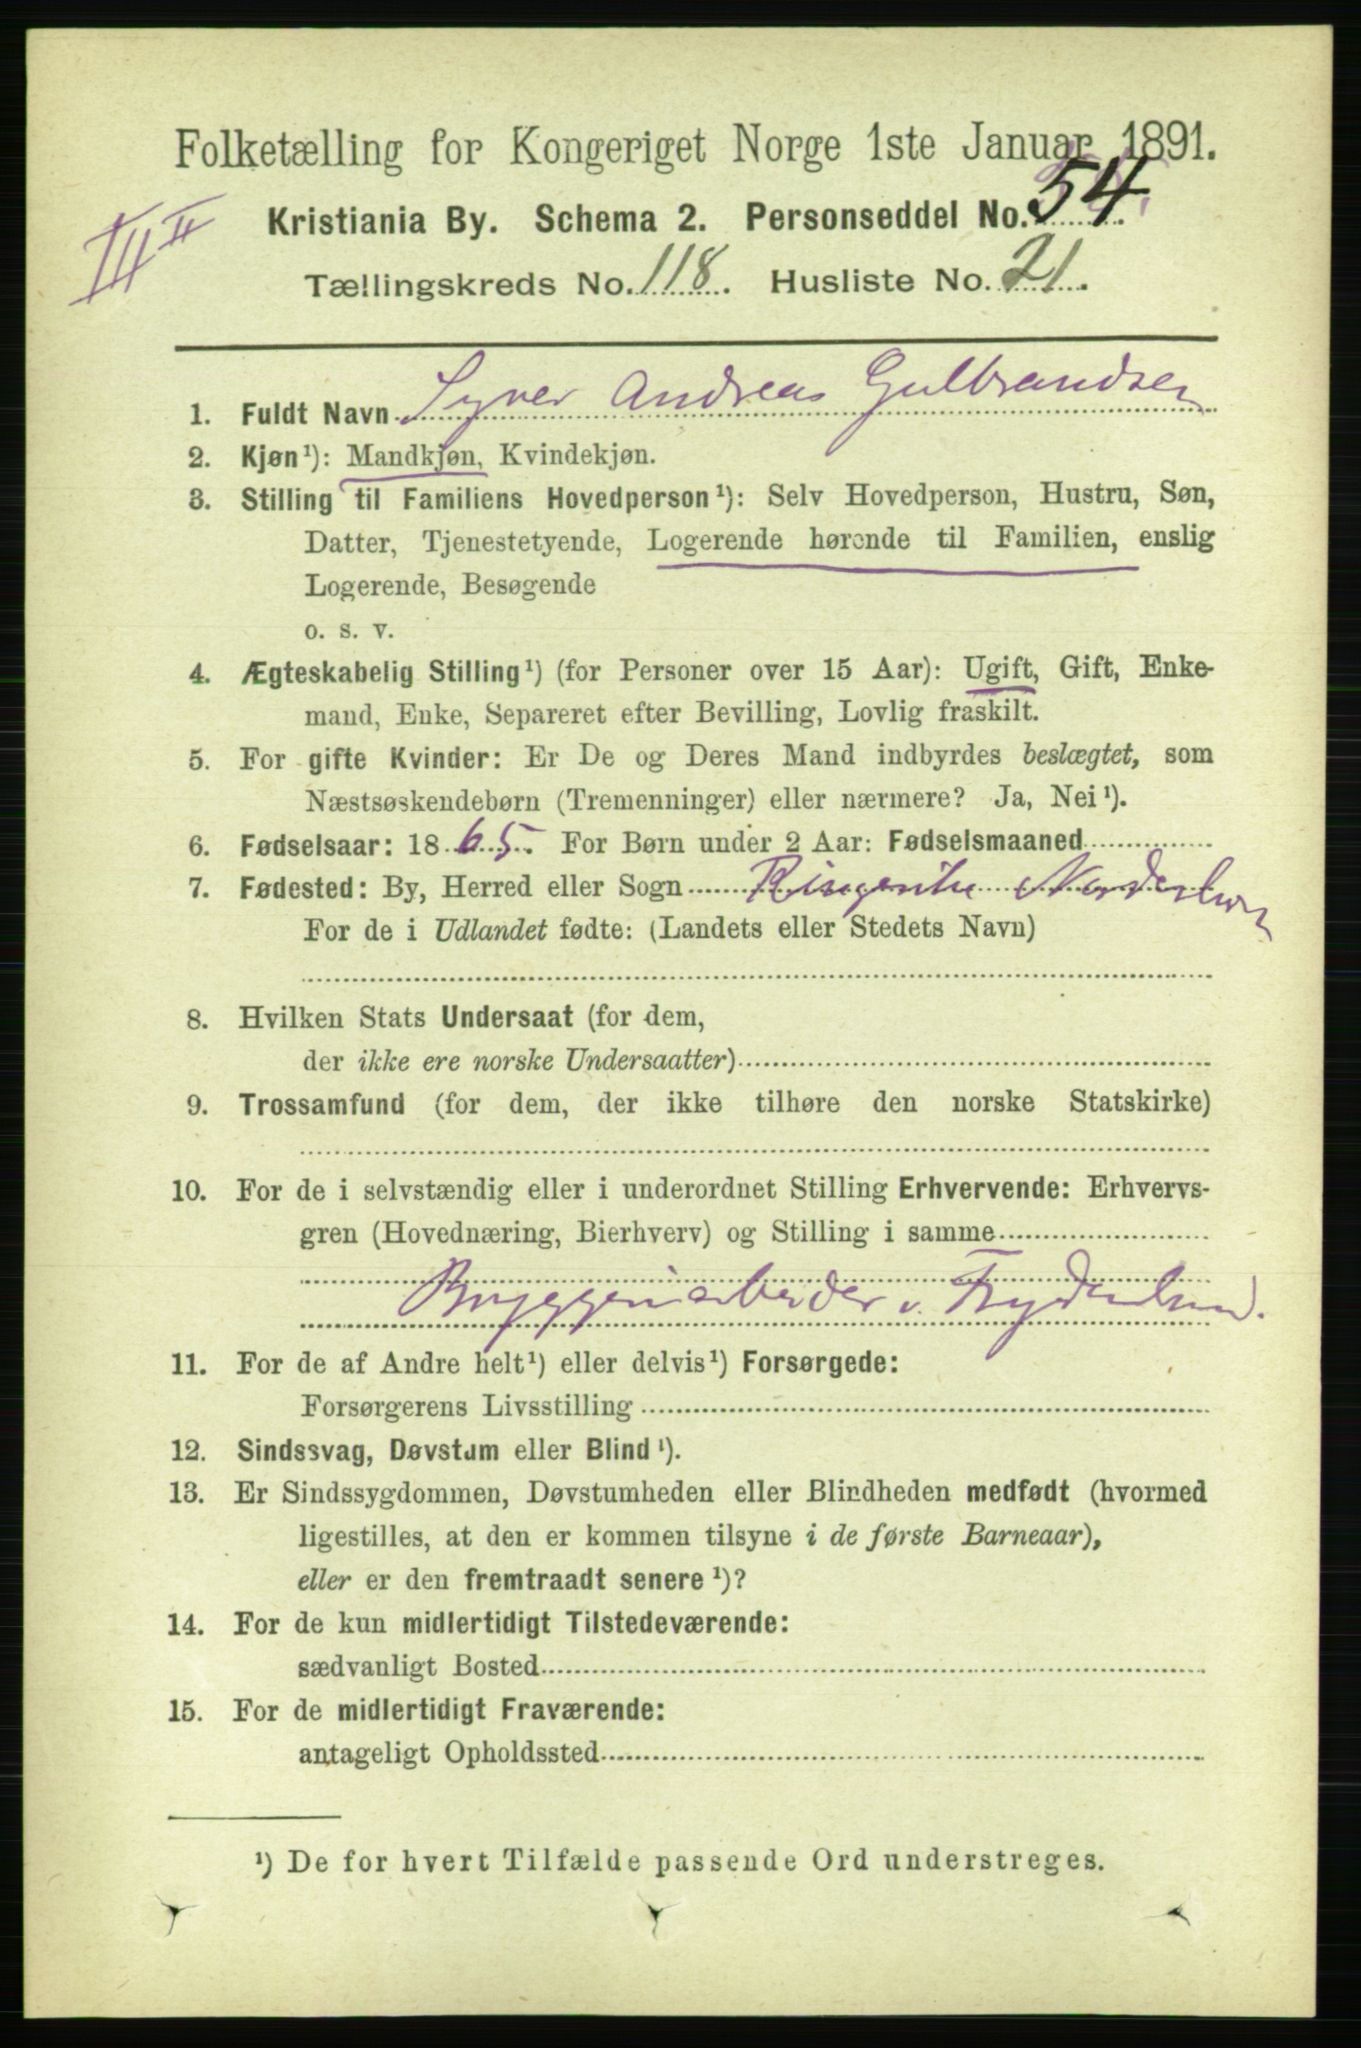 Folketælling for Kongeriget Norge 1ste Januar 1891.
III II
Kristiania By. Schema 2. Personseddel No. 54.
Tællingskreds No. 118. Husliste No. 21.
1. Fuldt Navn Syver Andreas Gulbrandsen
2. Kjøn¹): Mandkjøn, Kvindekjøn.
3. Stilling til Familiens Hovedperson¹): Selv Hovedperson, Hustru, Søn,
Datter, Tjenestetyende, Logerende hørende til Familien, enslig
Logerende, Besøgende
o. s. v.
4. Ægteskabelig Stilling¹) (for Personer over 15 Aar): Ugift, Gift, Enke-
mand, Enke, Separeret efter Bevilling, Lovlig fraskilt.
5. For gifte Kvinder: Er De og Deres Mand indbyrdes beslægtet, som
Næstsøskendebørn (Tremenninger) eller nærmere? Ja, Nei¹).
6. Fødselsaar: 1865. For Børn under 2 Aar: Fødselsmaaned
7. Fødested: By, Herred eller Sogn Ringerike Norderhov
For de i Udlandet fødte: (Landets eller Stedets Navn)
8. Hvilken Stats Undersaat (for dem,
der ikke ere norske Undersaatter)
9. Trossamfund (for dem, der ikke tilhøre den norske Statskirke)
10. For de i selvstændig eller i underordnet Stilling Erhvervende: Erhvervs-
gren (Hovednæring, Bierhverv) og Stilling i samme
Bryggeriarbeider v. Frydenlund.
11. For de af Andre helt¹) eller delvis¹) Forsørgede:
Forsørgerens Livsstilling
12. Sindssvag, Døvstum eller Blind¹).
13. Er Sindssygdommen, Døvstumheden eller Blindheden medfødt (hvormed
ligestilles, at den er kommen tilsyne i de første Barneaar),
eller er den fremtraadt senere¹)?
14. For de kun midlertidigt Tilstedeværende:
sædvanligt Bosted
15. For de midlertidigt Fraværende:
antageligt Opholdssted
¹) De for hvert Tilfælde passende Ord understreges.